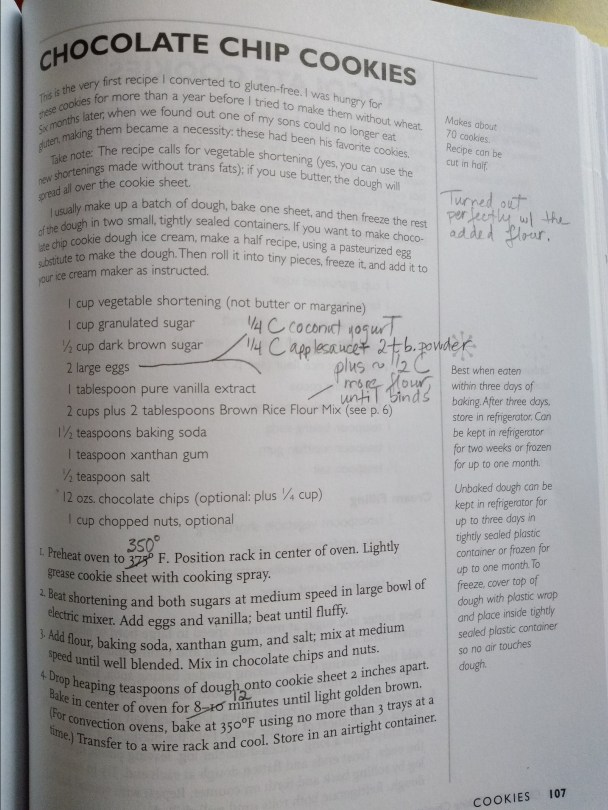 CHOCOLATE CHIP COOKIES
This is the very first recipe I converted to gluten-free. I was hungry for
these cookies for more than a year before I tried to make them without wheat.
Six months later, when we found out one of my sons could no longer eat
gluten, making them became a necessity: these had been his favorite cookies.
Take note: The recipe calls for vegetable shortening (yes, you can use the
new shortenings made without trans fats); if you use butter, the dough will
spread all over the cookie sheet.
I usually make up a batch of dough, bake one sheet, and then freeze the rest
of the dough in two small, tightly sealed containers. If you want to make choco-
late chip cookie dough ice cream, make a half recipe, using a pasteurized egg
substitute to make the dough. Then roll it into tiny pieces, freeze it, and add it to
your ice cream maker as instructed.
Makes about
70 cookies.
Recipe can be
cut in half.
Turned out
perfectly w/ the
added flour.
1 cup vegetable shortening (not butter or margarine)
1 cup granulated sugar
1/4 C coconut yogurt
½ cup dark brown sugar
1/4 C applesauce + 2 tb. powder
2 large eggs
plus ~ 1/2 C
1 tablespoon pure vanilla extract
more flour,
until binds
2 cups plus 2 tablespoons Brown Rice Flour Mix (see p. 6)
1½ teaspoons baking soda
1 teaspoon xanthan gum
½ teaspoon salt
12 ozs. chocolate chips (optional: plus ¼ cup)
1 cup chopped nuts, optional
Best when eaten
within three days of
baking. After three days,
store in refrigerator. Can
be kept in refrigerator
for two weeks or frozen
for up to one month.
Unbaked dough can be
kept in refrigerator for
up to three days in
tightly sealed plastic
container or frozen for
up to one month. To
freeze, cover top of
dough with plastic wrap
and place inside tightly
sealed plastic container
so no air touches
dough.
350°
1. Preheat oven to 375° F. Position rack in center of oven. Lightly
grease cookie sheet with cooking spray.
2. Beat shortening and both sugars at medium speed in large bowl of
electric mixer. Add eggs and vanilla; beat until fluffy.
3. Add flour, baking soda, xanthan gum, and salt; mix at medium
speed until well blended. Mix in chocolate chips and nuts.
4. Drop heaping teaspoons of dough onto cookie sheet 2 inches apart.
12
Bake in center of oven for 8–10 minutes until light golden brown.
(For convection ovens, bake at 350°F using no more than 3 trays at a
time.) Transfer to a wire rack and cool. Store in an airtight container.
COOKIES 107